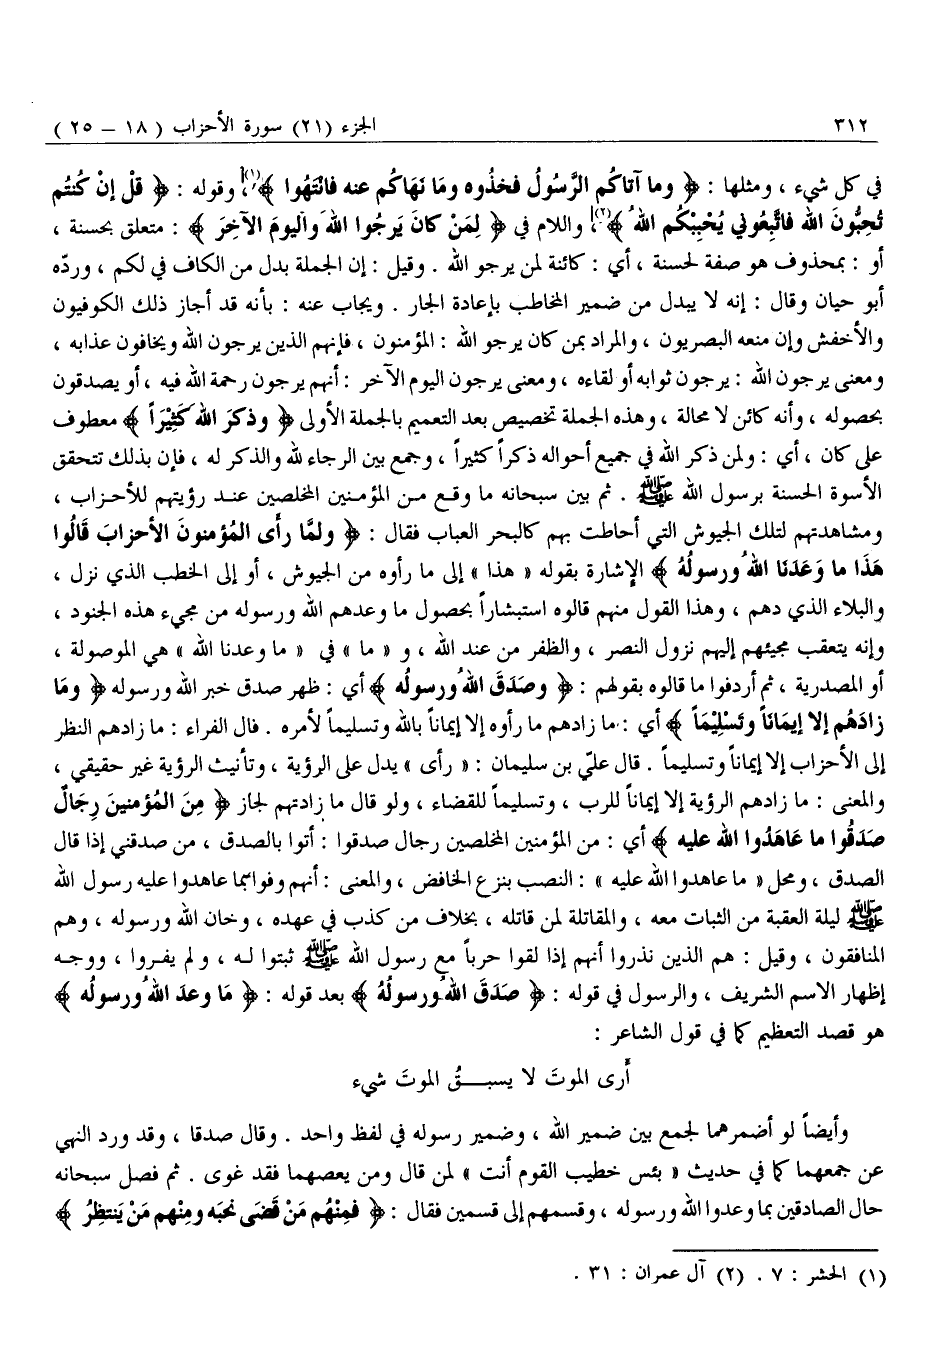 ٣١٢ الجزء (٢١) سورة الأحزاب ( ١٨ – ٢٥ )
في كل شيء ، ومثلها : ﴿ وما آتاكُم الرَّسُولُ فخذُوه ومَا نَهَاكُم عنه فانْتَهُوا ﴾(١)، وقوله : ﴿ قلْ إنْ كُنتُم
تُحِبُّونَ الله فاتَّبِعُوني يُحْبِبْكُم اللهُ ﴾(٢)، واللام في ﴿ لِمَنْ كانَ يَرجُوا اللهَ واليومَ الآخِرَ ﴾ : متعلق بحسنة ،
أو : بمحذوف هو صفة لحسنة ، أي : كائنة لمن يرجو الله . وقيل : إن الجملة بدل من الكاف في لكم ، وردّه
أبو حيان وقال : إنه لا يبدل من ضمير المخاطب بإعادة الجار . ويجاب عنه : بأنه قد أجاز ذلك الكوفيون
والأخفش وإن منعه البصريون ، والمراد بمن كان يرجو الله : المؤمنون ، فإنهم الذين يرجون الله ويخافون عذابه ،
ومعنى يرجون الله : يرجون ثوابه أو لقاءه ، ومعنى يرجون اليوم الآخر : أنهم يرجون رحمة الله فيه ، أو يصدقون
بحصوله ، وأنه كائن لا محالة ، وهذه الجملة تخصيص بعد التعميم بالجملة الأولى ﴿ وذكرَ اللهَ كَثِيْرَاً ﴾ معطوف
على كان ، أي : ولمن ذكر الله في جميع أحواله ذكراً كثيراً ، وجمع بين الرجاء لله والذكر له ، فإن بذلك تتحقق
الأسوة الحسنة برسول الله ﷺ . ثم بين سبحانه ما وقع من المؤمنين المخلصين عند رؤيتهم للأحزاب ،
ومشاهدتهم لتلك الجيوش التي أحاطت بهم كالبحر العباب فقال : ﴿ ولمَّا رأَى المُؤمنونَ الأحزابَ قَالُوا
هَذَا ما وَعَدَنَا اللهُ ورسولُهُ ﴾ الإشارة بقوله « هذا » إلى ما رأوه من الجيوش ، أو إلى الخطب الذي نزل ،
والبلاء الذي دهم ، وهذا القول منهم قالوه استبشاراً بحصول ما وعدهم الله ورسوله من مجيء هذه الجنود ،
وإنه يتعقب مجيئهم إليهم نزول النصر ، والظفر من عند الله ، و « ما » في « ما وعدنا الله » هي الموصولة ،
أو المصدرية ، ثم أردفوا ما قالوه بقولهم : ﴿ وصَدَقَ اللهُ ورسولُه ﴾ أي : ظهر صدق خبر الله ورسوله ﴿ ومَا
زادَهُم إلا إيمَانَاً وتَسْلِيْمَاً ﴾ أي : ما زادهم ما رأوه إلا إيماناً بالله وتسليماً لأمره . قال الفراء : ما زادهم النظر
إلى الأحزاب إلا إيماناً وتسليماً . قال عليّ بن سليمان : « رأى » يدل على الرؤية ، وتأنيث الرؤية غير حقيقي ،
والمعنى : ما زادهم الرؤية إلا إيماناً للرب ، وتسليماً للقضاء ، ولو قال ما زادتهم لجاز ﴿ مِنَ المُؤمنينَ رِجَالٌ
صَدَقُوا ما عَاهَدُوا اللهَ عليه ﴾ أي : من المؤمنين المخلصين رجال صدقوا : أتوا بالصدق ، من صدقني إذا قال
الصدق ، ومحل « ما عاهدوا الله عليه » : النصب بنزع الخافض ، والمعنى : أنهم وفوا بما عاهدوا عليه رسول الله
ﷺ ليلة العقبة من الثبات معه ، والمقاتلة لمن قاتله ، بخلاف من كذب في عهده ، وخان الله ورسوله ، وهم
المنافقون ، وقيل : هم الذين نذروا أنهم إذا لقوا حرباً مع رسول الله ﷺ ثبتوا له ، ولم يفروا ، ووجه
إظهار الاسم الشريف ، والرسول في قوله : ﴿ صَدَقَ اللهُ ورسولُهُ ﴾ بعد قوله : ﴿ مَا وعدَ اللهُ ورسولُه ﴾
هو قصد التعظيم كما في قول الشاعر :
أَرى الموتَ لا يسبــقُ الموتَ شيء
وأيضاً لو أضمرهما لجمع بين ضمير الله ، وضمير رسوله في لفظ واحد . وقال صدقا ، وقد ورد النهي
عن جمعهما كما في حديث « بئس خطيب القوم أنت » لمن قال ومن يعصهما فقد غوى . ثم فصل سبحانه
حال الصادقين بما وعدوا الله ورسوله ، وقسمهم إلى قسمين فقال : ﴿ فمِنْهُم مَنْ قَضَى نحبَه ومِنْهم مَنْ يَنتظِرُ ﴾
(١) الحشر : ٧ . (٢) آل عمران : ٣١ .